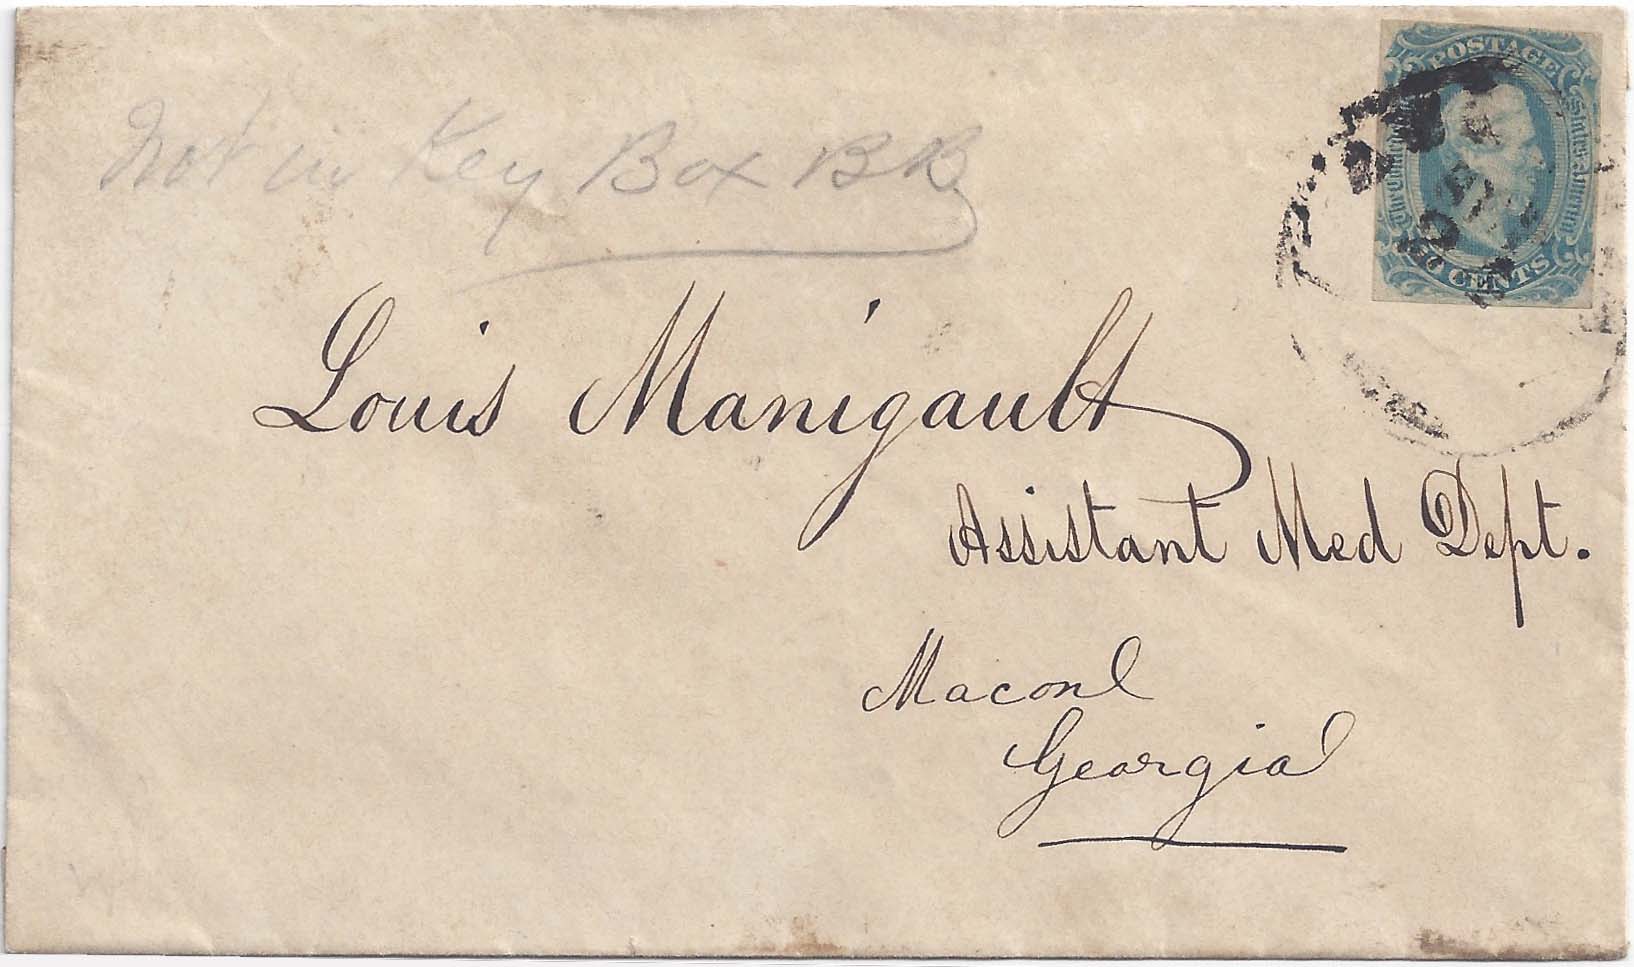 Not in Key Box BB
POSTAGE
The Confederate States America
CENTS
Louis Manigault
Assistant Med Dept.
Macon
Georgia